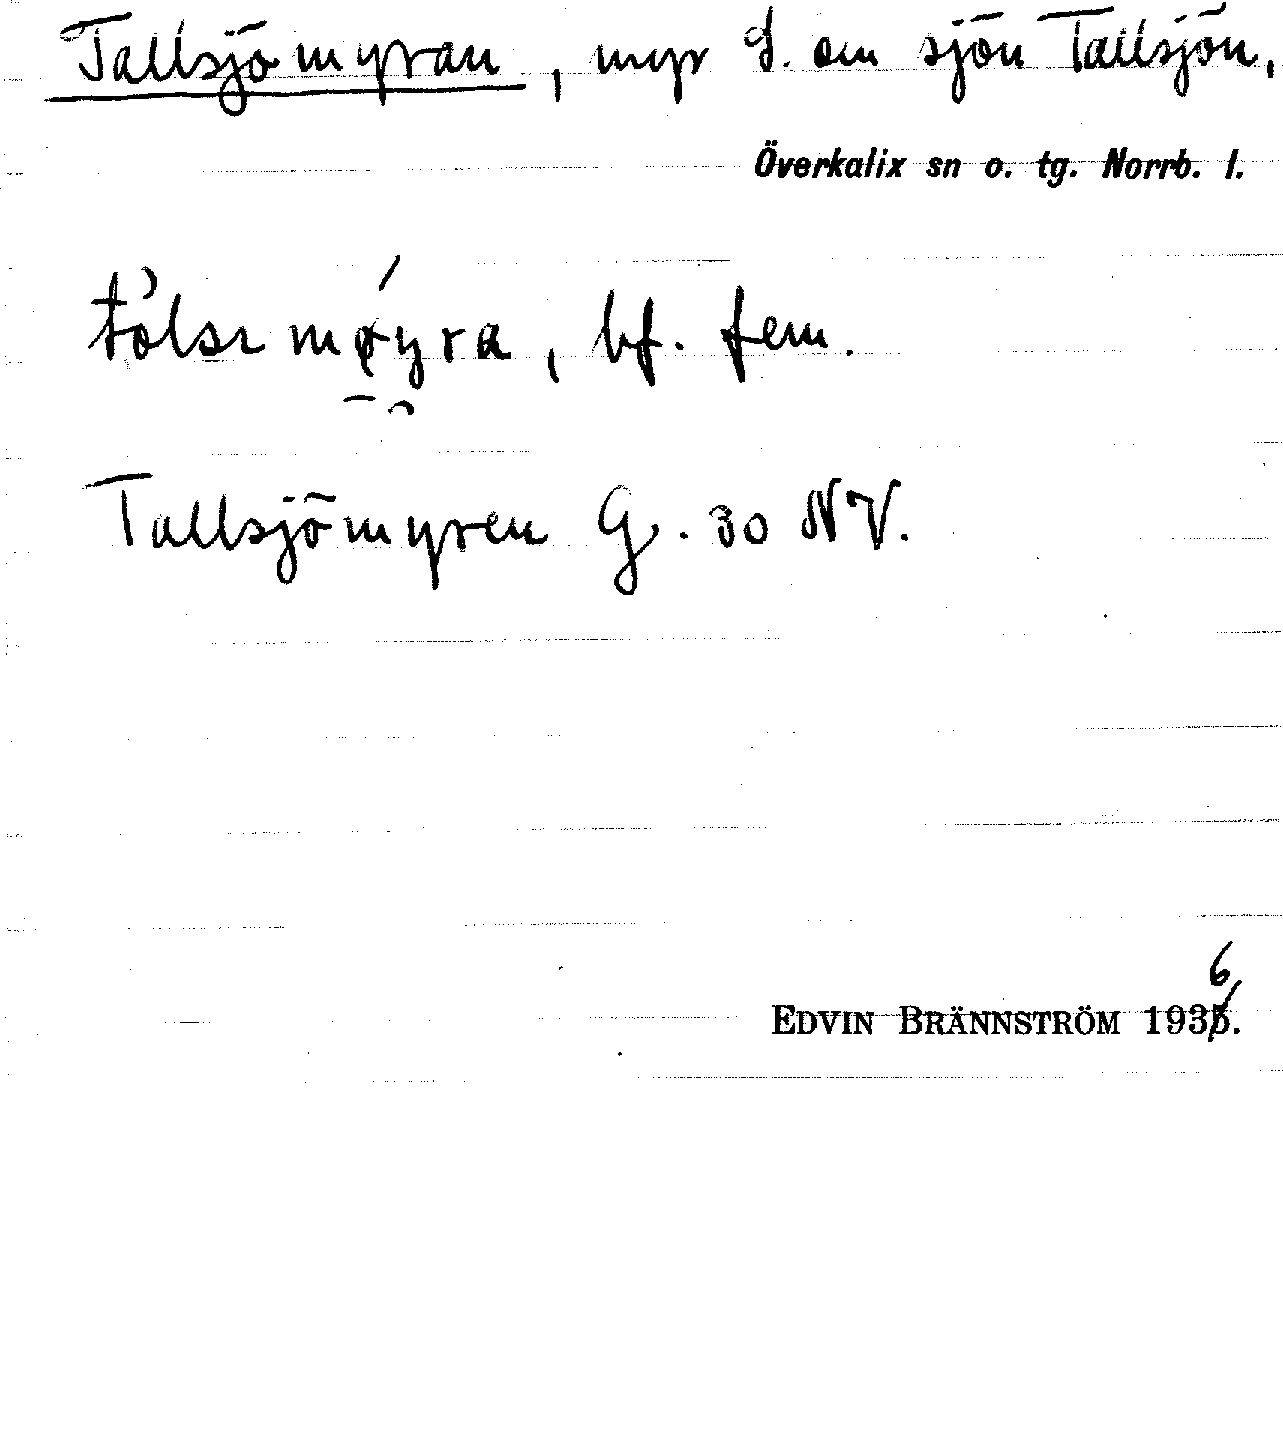 Tallsjömyran, myr S. om sjön Tallsjön,
Överkalix sn o. tg. Norrb. l.
bf. fem.
Tallsjömyren G. 30 NV.
6
EDVIN BRÄNNSTRÖM 1935.